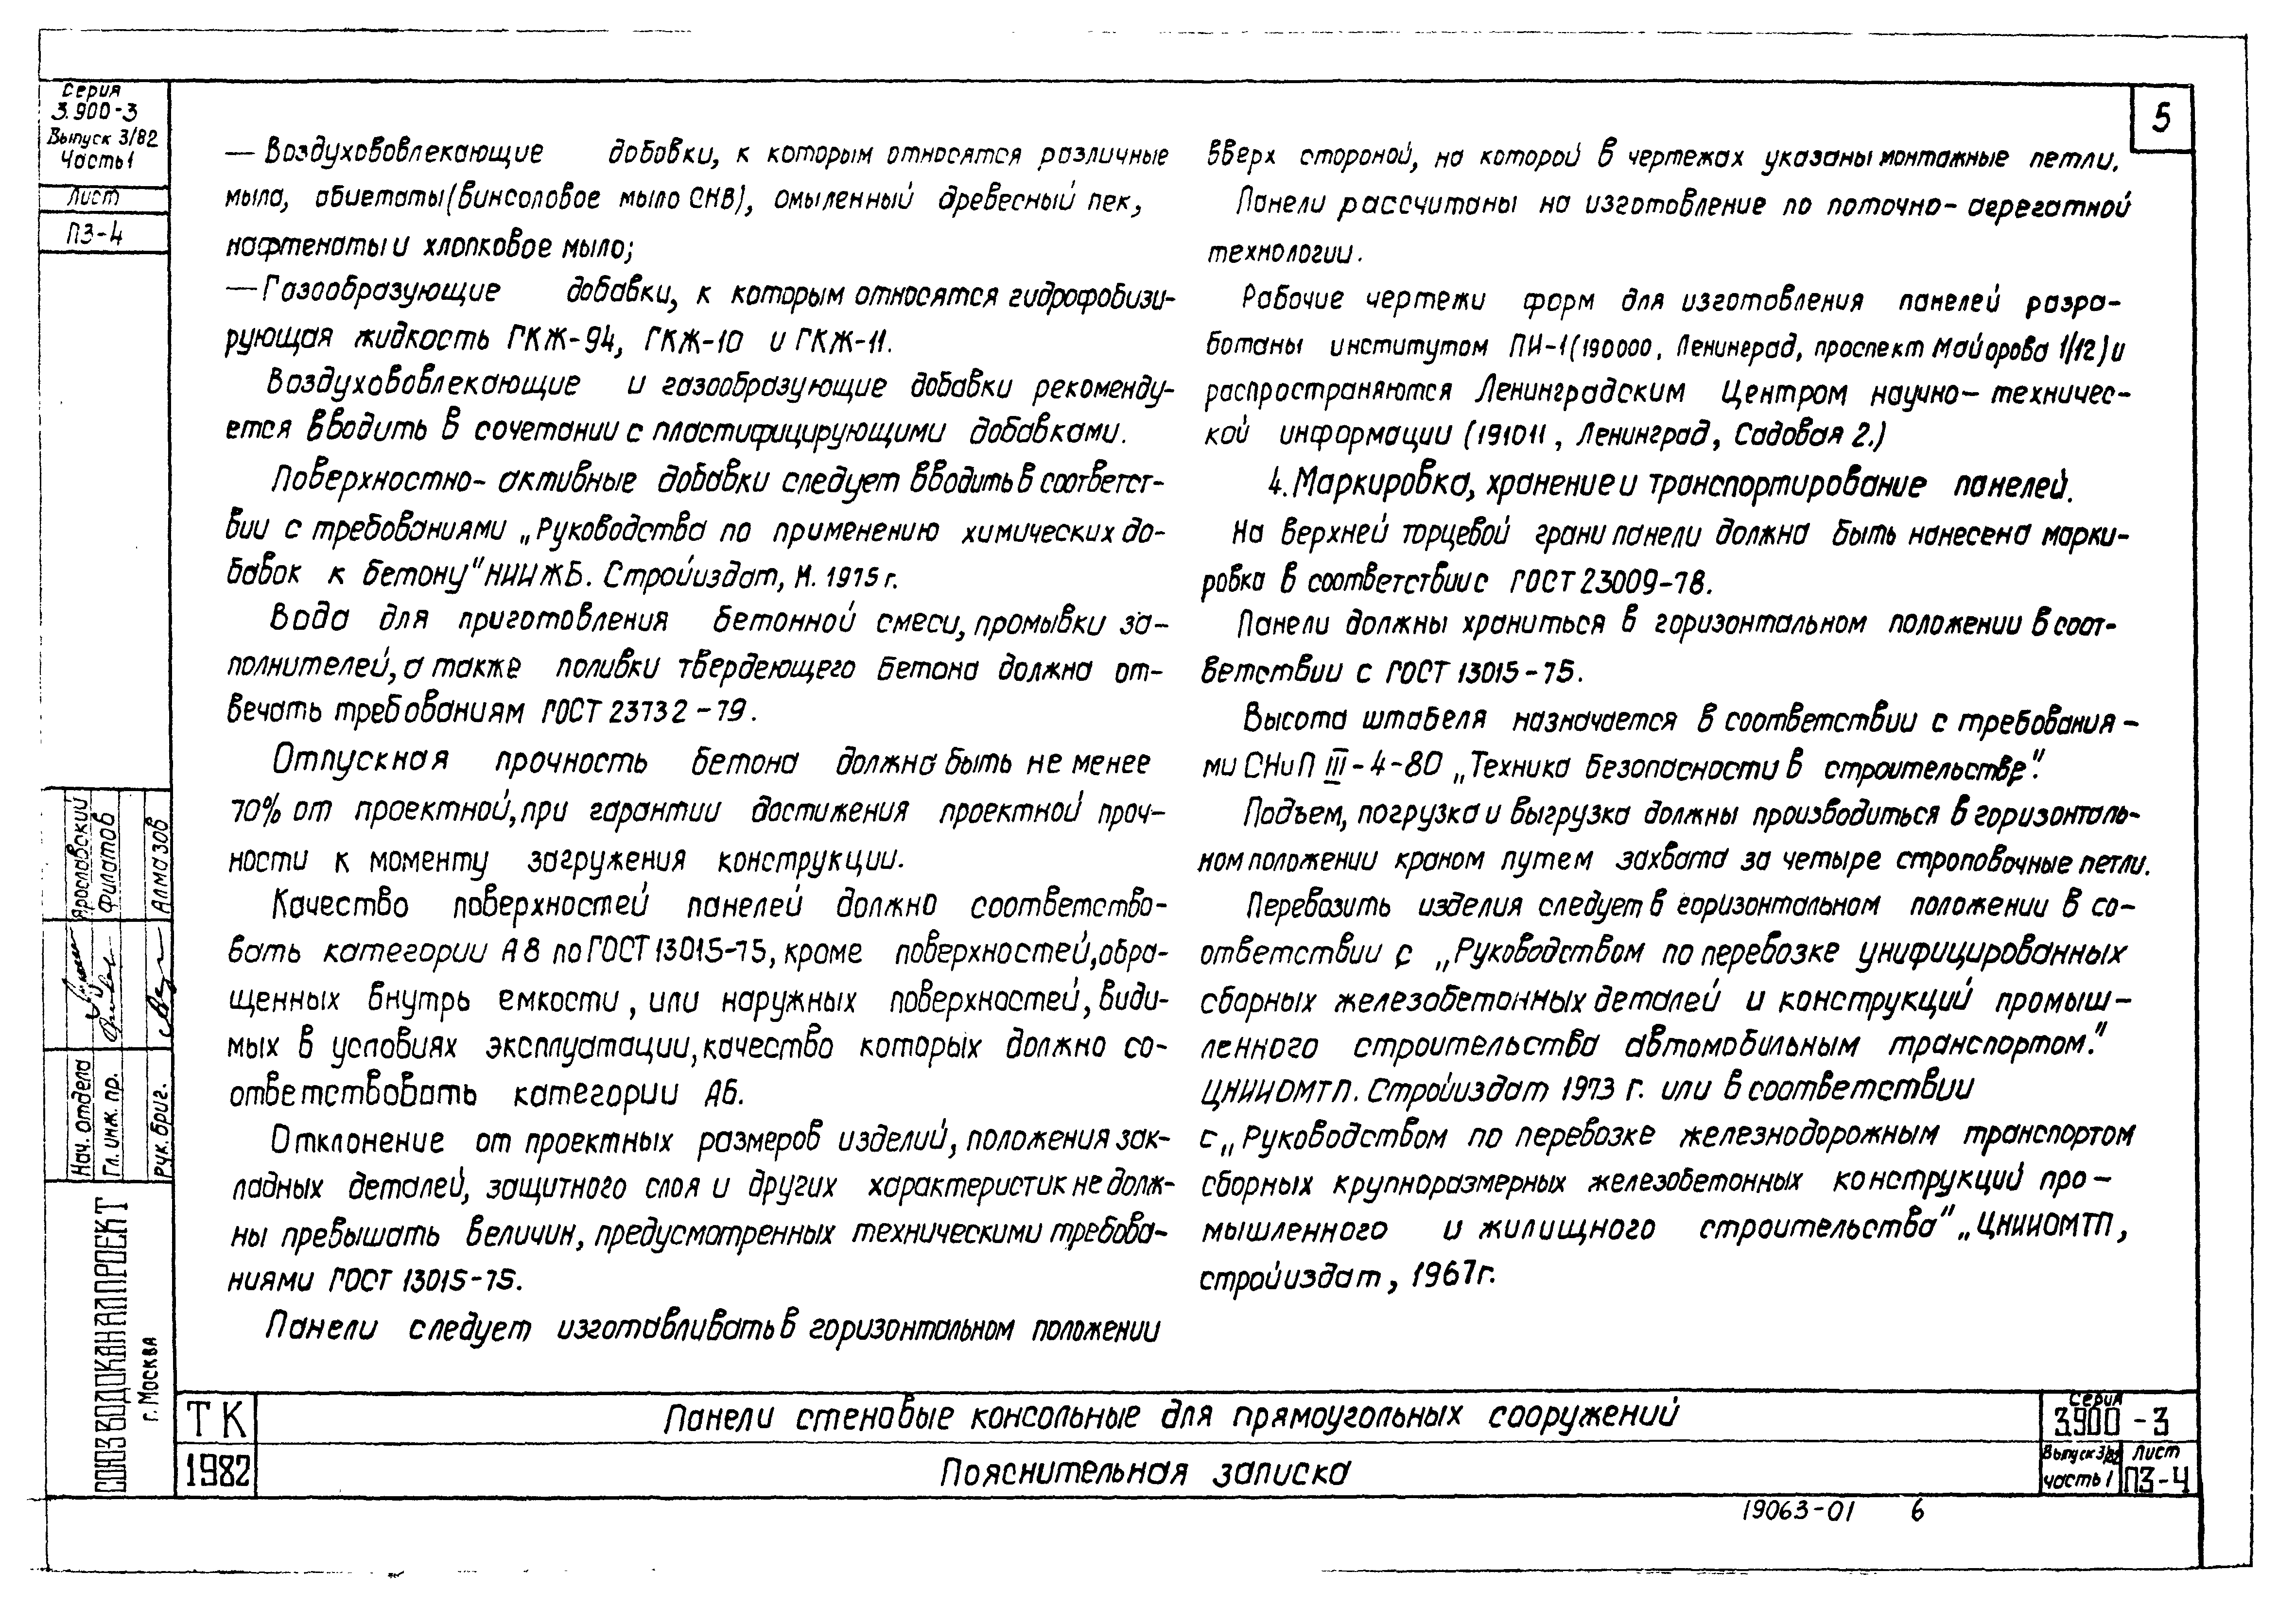 Серия
3.900-3
Выпуск 3/82
Часть 1
Лист
ПЗ-4
5
— Воздухововлекающие добавки, к которым относятся различные
мыла, абиетаты (винсоловое мыло СНВ), омыленный древесный пек,
нафтенаты и хлопковое мыло;
— Газообразующие добавки, к которым относятся гидрофобизи-
рующая жидкость ГКЖ-94, ГКЖ-10 и ГКЖ-11.
Воздухововлекающие и газообразующие добавки рекоменду-
ется вводить в сочетании с пластифицирующими добавками.
Поверхностно- активные добавки следует вводить в соответст-
вии с требованиями „Руководства по применению химических до-
бавок к бетону" НИИЖБ. Стройиздат, М. 1975 г.
Вода для приготовления бетонной смеси, промывки за-
полнителей, а также поливки твердеющего бетона должна от-
вечать требованиям ГОСТ 23732-79.
Отпускная прочность бетона должна быть не менее
70% от проектной, при гарантии достижения проектной проч-
ности к моменту загружения конструкции.
Качество поверхностей панелей должно соответство-
вать категории А8 по ГОСТ 13015-75, кроме поверхностей, обра-
щенных внутрь емкости, или наружных поверхностей, види-
мых в условиях эксплуатации, качество которых должно со-
ответствовать категории А6.
Отклонение от проектных размеров изделий, положения зак-
ладных деталей, защитного слоя и других характеристик не долж-
ны превышать величин, предусмотренных техническими требова-
ниями ГОСТ 13015-75.
Панели следует изготавливать в горизонтальном положении
вверх стороной, на которой в чертежах указаны монтажные петли.
Панели рассчитаны на изготовление по поточно- агрегатной
технологии.
Рабочие чертежи форм для изготовления панелей разра-
ботаны институтом ПИ-1 (190000, Ленинград, проспект Майорова 1/12) и
распространяются Ленинградским Центром научно- техничес-
кой информации (191011, Ленинград, Садовая 2.)
4. Маркировка, хранение и транспортирование панелей.
На верхней торцевой грани панели должна быть нанесена марки-
ровка в соответствии с ГОСТ 23009-78.
Панели должны храниться в горизонтальном положении в соот-
ветствии с ГОСТ 13015-75.
Высота штабеля назначается в соответствии с требования-
ми СНиП III-4-80 „Техника безопасности в строительстве".
Подъем, погрузка и выгрузка должны производиться в горизонталь-
ном положении краном путем захвата за четыре строповочные петли.
Перевозить изделия следует в горизонтальном положении в со-
ответствии с „Руководством по перевозке унифицированных
сборных железобетонных деталей и конструкций промыш-
ленного строительства автомобильным транспортом."
ЦНИИОМТП. Стройиздат 1973 г. или в соответствии
с „Руководством по перевозке железнодорожным транспортом
сборных крупноразмерных железобетонных конструкций про-
мышленного и жилищного строительства" „ЦНИИОМТП,
стройиздат, 1967г.
Нач. отдела Ярославский
Гл. инж. пр. Филатов
Рук. бриг. Алмазов
СОЮЗВОДОКАНАЛПРОЕКТ
г. Москва
ТК
1982
Панели стеновые консольные для прямоугольных сооружений
Пояснительная записка
Серия
3.900-3
Выпуск 3/82
часть 1
Лист
ПЗ-4
19063-01 6